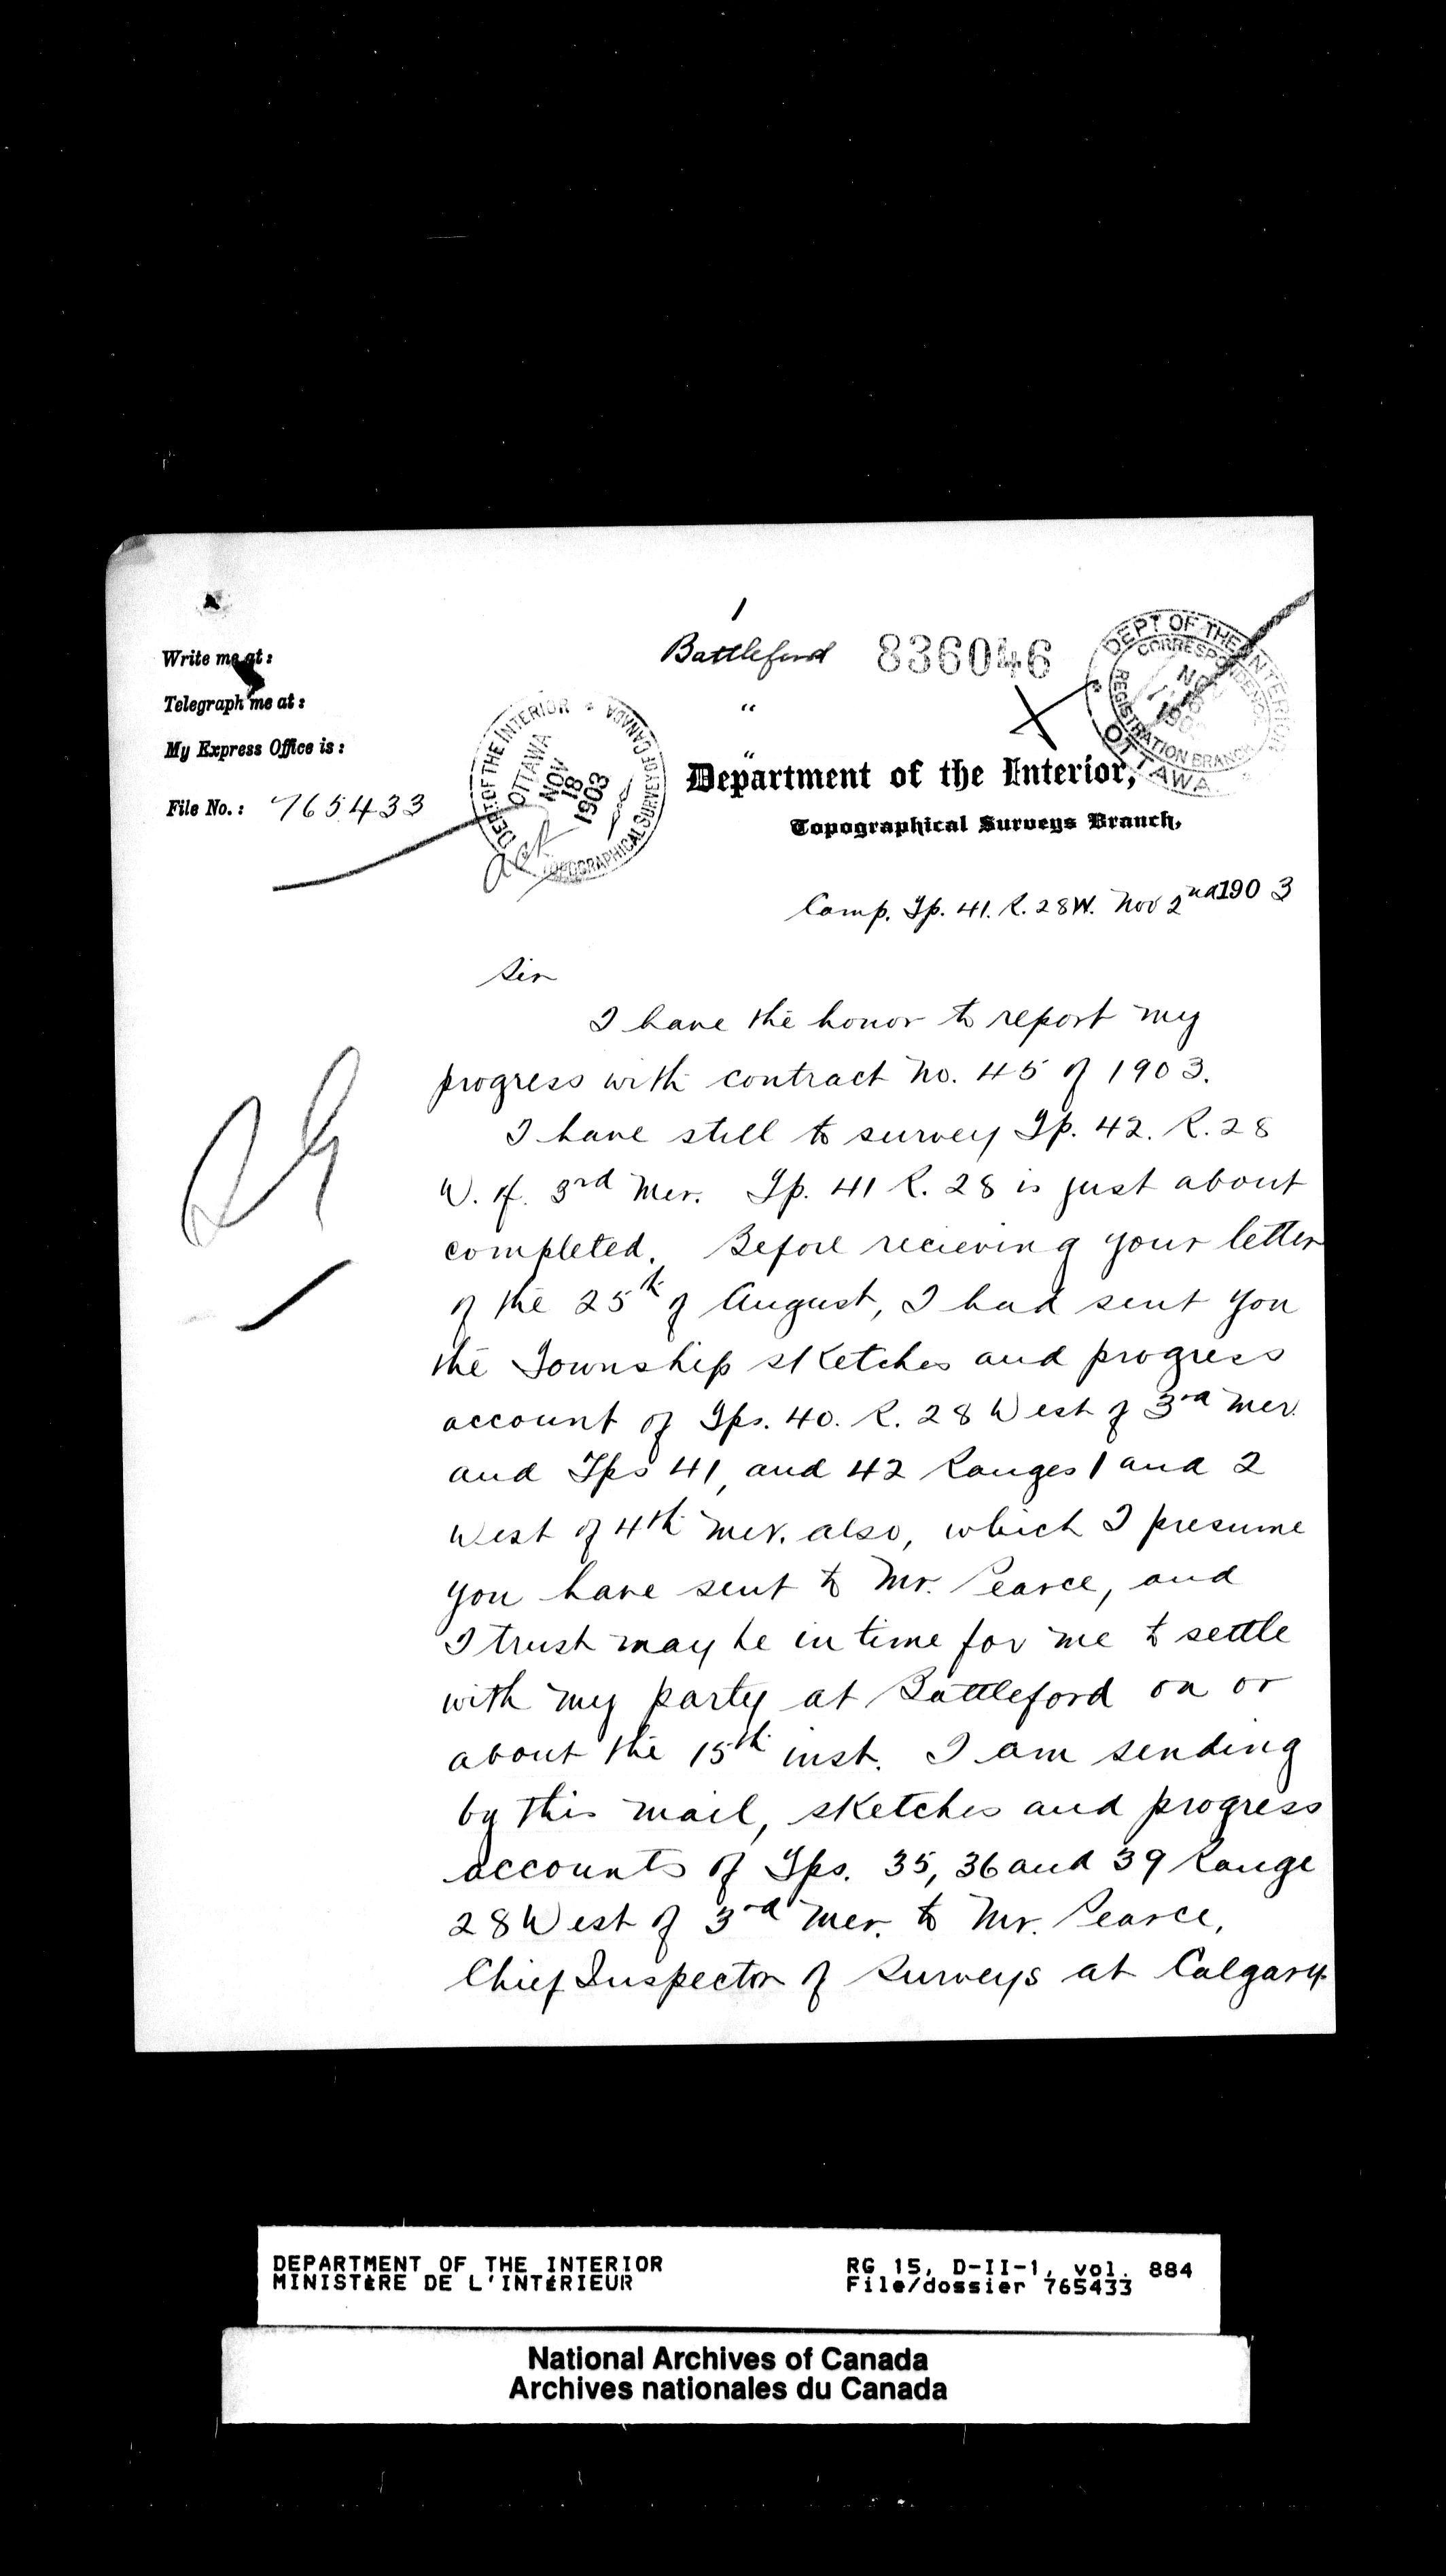 1
Write me at:
Battleford
836046
Telegraph me at:
"
My Express Office is:
"
File No.: 765433
DEPT OF THE INTERIOR
TOPOGRAPHICAL SURVEY OF CANADA
OTTAWA
NOV
18
1903
Ack
DEPT OF THE INTERIOR
CORRESPONDENCE
REGISTRATION BRANCH
OTTAWA
Department of the Interior,
Topographical Surveys Branch,
Camp. Tp. 41. R. 28W. Nov 2nd 1903
Sir
I have the honor to report my
progress with contract No. 45 of 1903.
I have still to survey Tp. 42. R. 28
W. of 3rd Mer. Tp. 41 R. 28 is just about
completed. Before recieving your letter
of the 25th of August, I had sent you
the Township sketches and progress
account of Tps. 40. R. 28 West of 3rd Mer.
and Tps 41, and 42 Ranges 1 and 2
West of 4th Mer. also, which I presume
you have sent to Mr. Pearce, and
I trust may be in time for me to settle
with my party at Battleford on or
about the 15th inst. I am sending
by this mail, sketches and progress
accounts of Tps. 35, 36 and 39 Range
28 West of 3rd Mer. to Mr. Pearce,
Chief Inspector of Surveys at Calgary.
DEPARTMENT OF THE INTERIOR
MINISTÈRE DE L'INTÉRIEUR
RG 15, D-II-1, vol. 884
File/dossier 765433
National Archives of Canada
Archives nationales du Canada